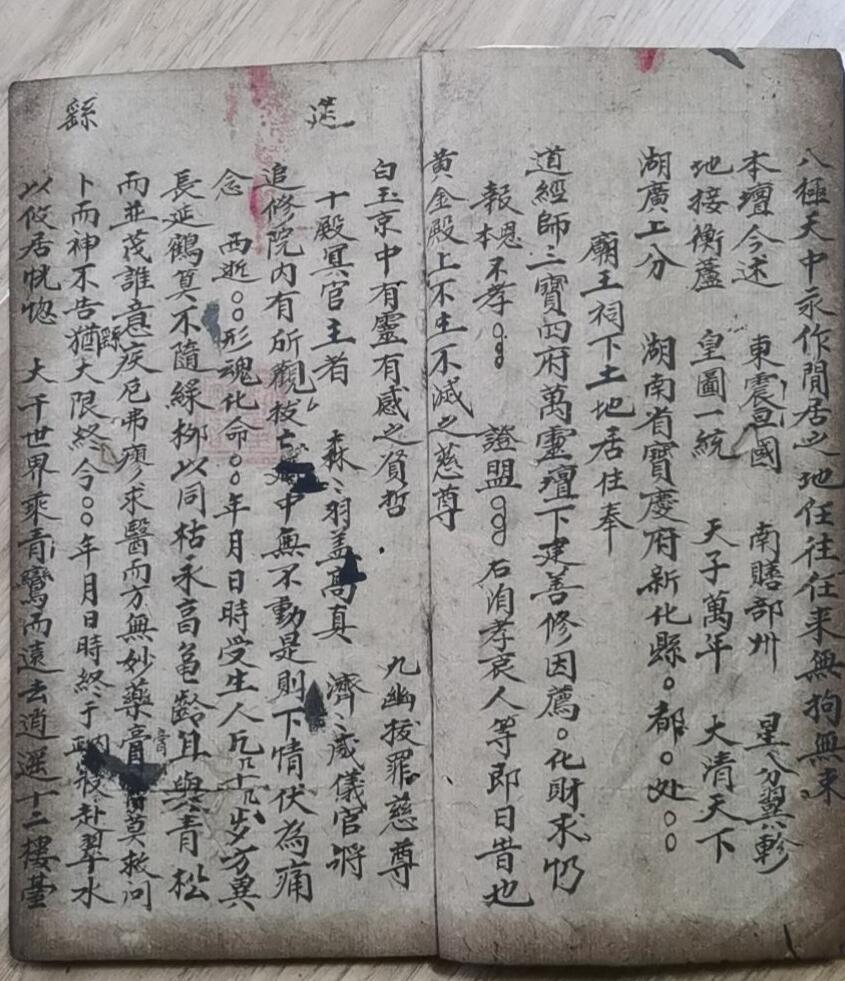 八極天中永作閒居之地任往任來無拘無束
本壇今述 東震旦國 南贍部州 星分翼軫
地接衡蘆 皇圖一統 天子萬年 大清天下
湖廣上分 湖南省寶慶府新化縣○都○处○○
廟王祠下土地居住奉
道經師三寶四府萬靈壇下建善修因薦○化財求
報恩不孝 證盟 右洎孝哀人等即日昔也
黄金殿上不生不滅之慈尊
白玉京中有靈有感之賢哲 九幽拔罪慈尊
十殿冥官王者 森〻羽盖高真 濟〻威儀官將
追修院内有所觀拔亡 中無不動是則下情伏為痛
念 西逝○○形魂化命○○年月日時受生人 岁方異
長延鶴算不隨綠柳以同枯永畜龜齡且與青松
而並茂誰意疾危弗廖求醫而方無妙藥膏 莫救问
卜而神不告猶大限終今○○年月日時終于 赴翠水
以攸居恍惚 大千世界乘青鸞而遠去逍遥十二樓臺